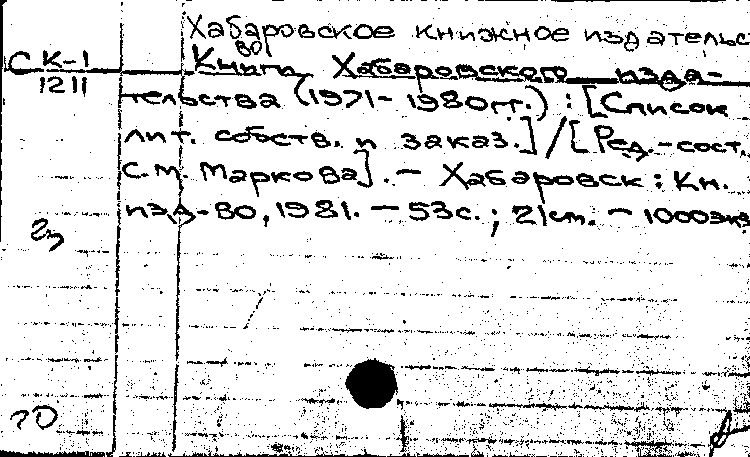 Хабаровское книжное издательс
во
СК-1
1211
Книги Хабаровского изда-
тельства (1971-1980гг.) : [Список
лит. собств. и заказ.] / [Ред.-сост.
С.М. Маркова]. — Хабаровск : Кн.
изд-во, 1981. — 53с. ; 21см. — 1000экз
2э